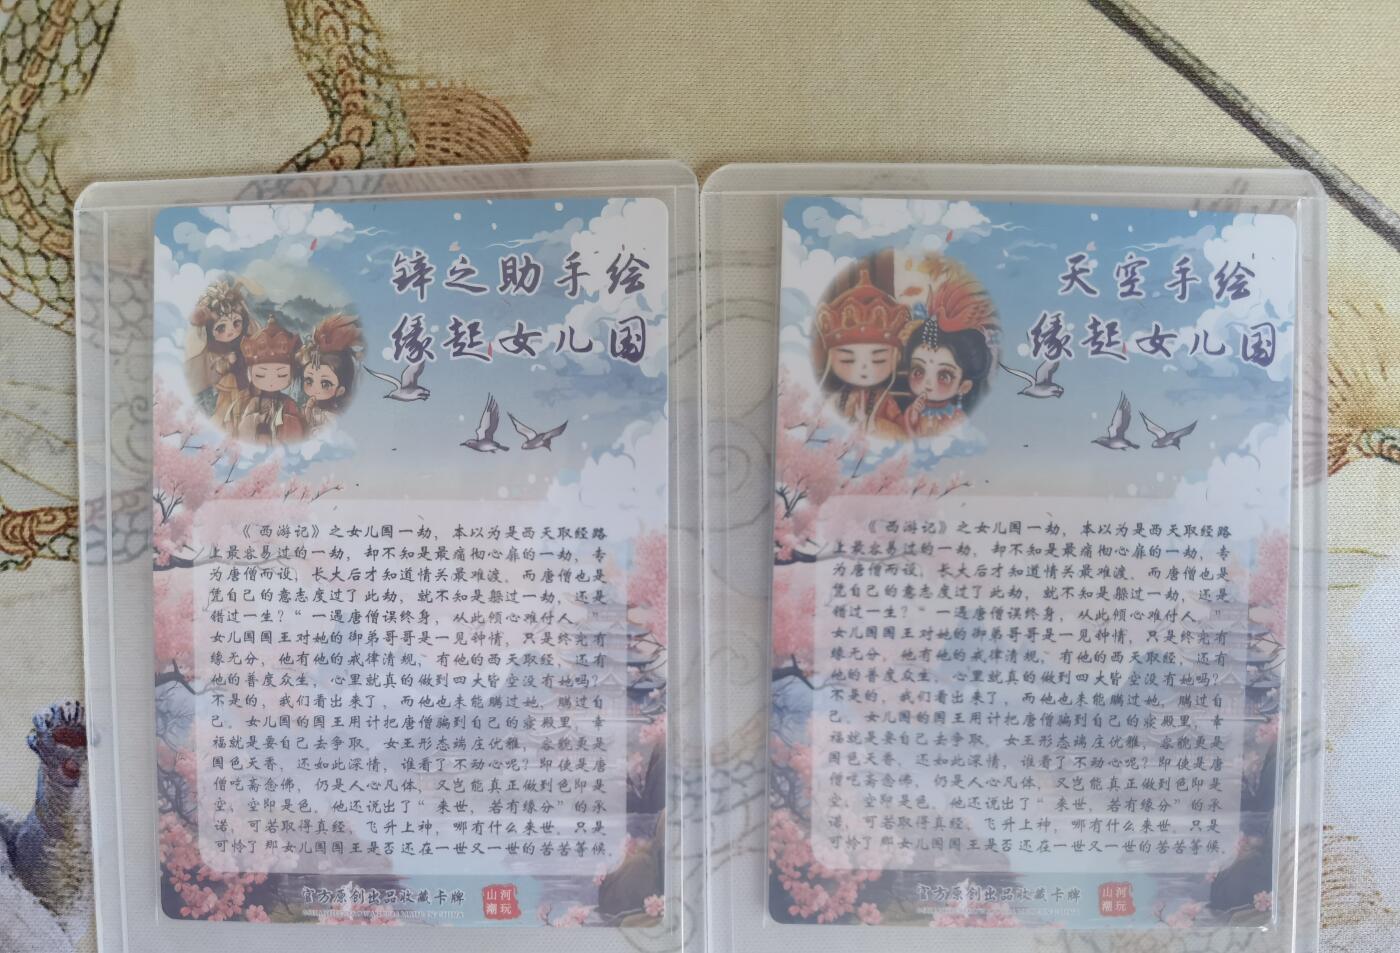 锌之助手绘
缘起女儿国
《西游记》之女儿国一劫，本以为是西天取经路
上最容易过的一劫，却不知是最痛彻心扉的一劫，专
为唐僧而设，长大后才知道情关最难渡。而唐僧也是
凭自己的意志度过了此劫，就不知是躲过一劫，还是
错过一生？“一遇唐僧误终身，从此倾心难付人。”
女儿国国王对她的御弟哥哥是一见钟情，只是终究有
缘无分，他有他的戒律清规，有他的西天取经，还有
他的普度众生，心里就真的做到四大皆空没有她吗？
不是的，我们看出来了，而他也未能瞒过她，瞒过自
己。女儿国的国王用计把唐僧骗到自己的寝殿里，幸
福就是要自己去争取。女王形态端庄优雅，容貌更是
国色天香，还如此深情，谁看了不动心呢？即使是唐
僧吃斋念佛，仍是人心凡体，又岂能真正做到色即是
空，空即是色。他还说出了“来世，若有缘分”的承
诺，可若取得真经，飞升上神，哪有什么来世。只是
可怜了那女儿国国王是否还在一世又一世的苦苦等候。
官方原创出品收藏卡牌
山河
潮玩
天空手绘
缘起女儿国
《西游记》之女儿国一劫，本以为是西天取经路
上最容易过的一劫，却不知是最痛彻心扉的一劫，专
为唐僧而设，长大后才知道情关最难渡。而唐僧也是
凭自己的意志度过了此劫，就不知是躲过一劫，还是
错过一生？“一遇唐僧误终身，从此倾心难付人。”
女儿国国王对她的御弟哥哥是一见钟情，只是终究有
缘无分，他有他的戒律清规，有他的西天取经，还有
他的普度众生，心里就真的做到四大皆空没有她吗？
不是的，我们看出来了，而他也未能瞒过她，瞒过自
己。女儿国的国王用计把唐僧骗到自己的寝殿里，幸
福就是要自己去争取。女王形态端庄优雅，容貌更是
国色天香，还如此深情，谁看了不动心呢？即使是唐
僧吃斋念佛，仍是人心凡体，又岂能真正做到色即是
空，空即是色。他还说出了“来世，若有缘分”的承
诺，可若取得真经，飞升上神，哪有什么来世。只是
可怜了那女儿国国王是否还在一世又一世的苦苦等候。
官方原创出品收藏卡牌
山河
潮玩